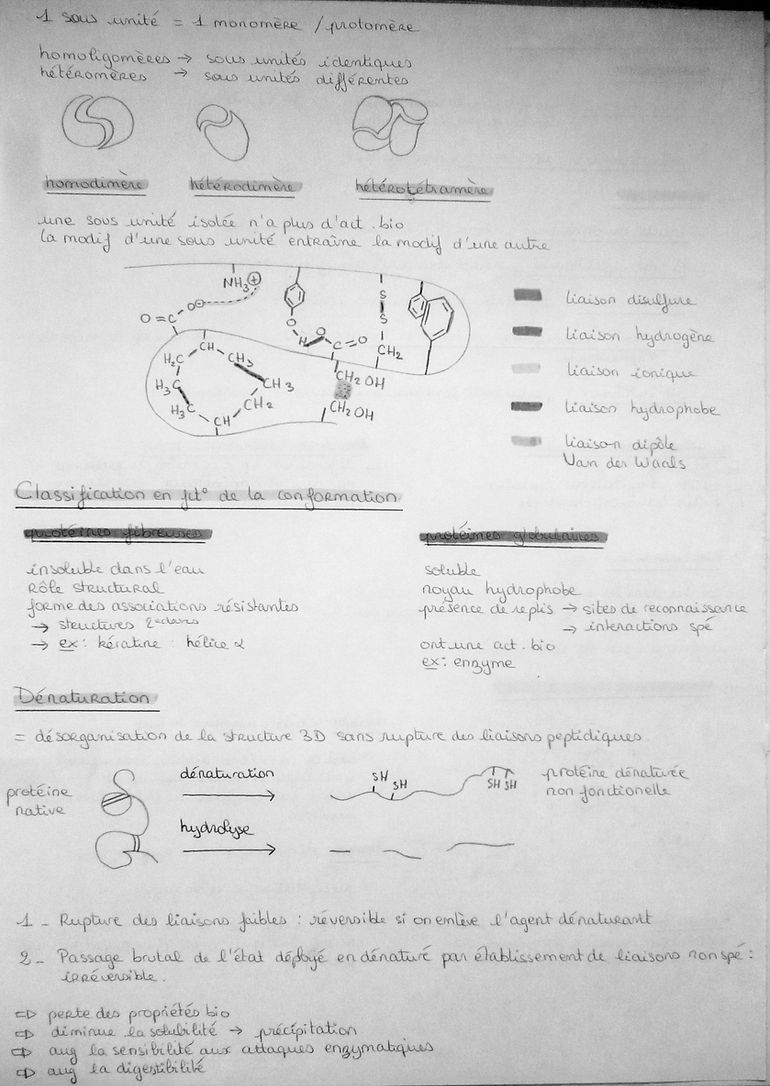 1 sous unité = 1 monomère / protomère
homoligomères → sous unités identiques
hétéromères → sous unités différentes
homodimère hétérodimère hétérotétramère
une sous unité isolée n'a plus d'act. bio
la modif d'une sous unité entraîne la modif d'une autre
NH3 +
O=C O-
O H O C=O
S S CH2
H2C CH CH3
H3C CH3
H3C CH CH2
CH2OH
CH2OH
liaison disulfure
liaison hydrogène
liaison ionique
liaison hydrophobe
liaison dipôle
Van der Waals
Classification en fct° de la conformation
protéines fibreuses
insoluble dans l'eau
rôle structural
forme des associations résistantes
→ structures 2ndaires
→ ex : kératine : hélice α
protéines globulaires
soluble
noyau hydrophobe
présence de replis → sites de reconnaissance
→ interactions spé
ont une act. bio
ex : enzyme
Dénaturation
= désorganisation de la structure 3D sans rupture des liaisons peptidiques.
protéine
native
dénaturation
SH SH SH SH
protéine dénaturée
non fonctionelle
hydrolyse
1 - Rupture des liaisons faibles : réversible si on enlève l'agent dénaturant
2 - Passage brutal de l'état déployé en dénaturé par établissement de liaisons non spé :
irréversible.
⇨ perte des propriétés bio
⇨ diminue la solubilité → précipitation
⇨ aug la sensibilité aux attaques enzymatiques
⇨ aug la digestibilité